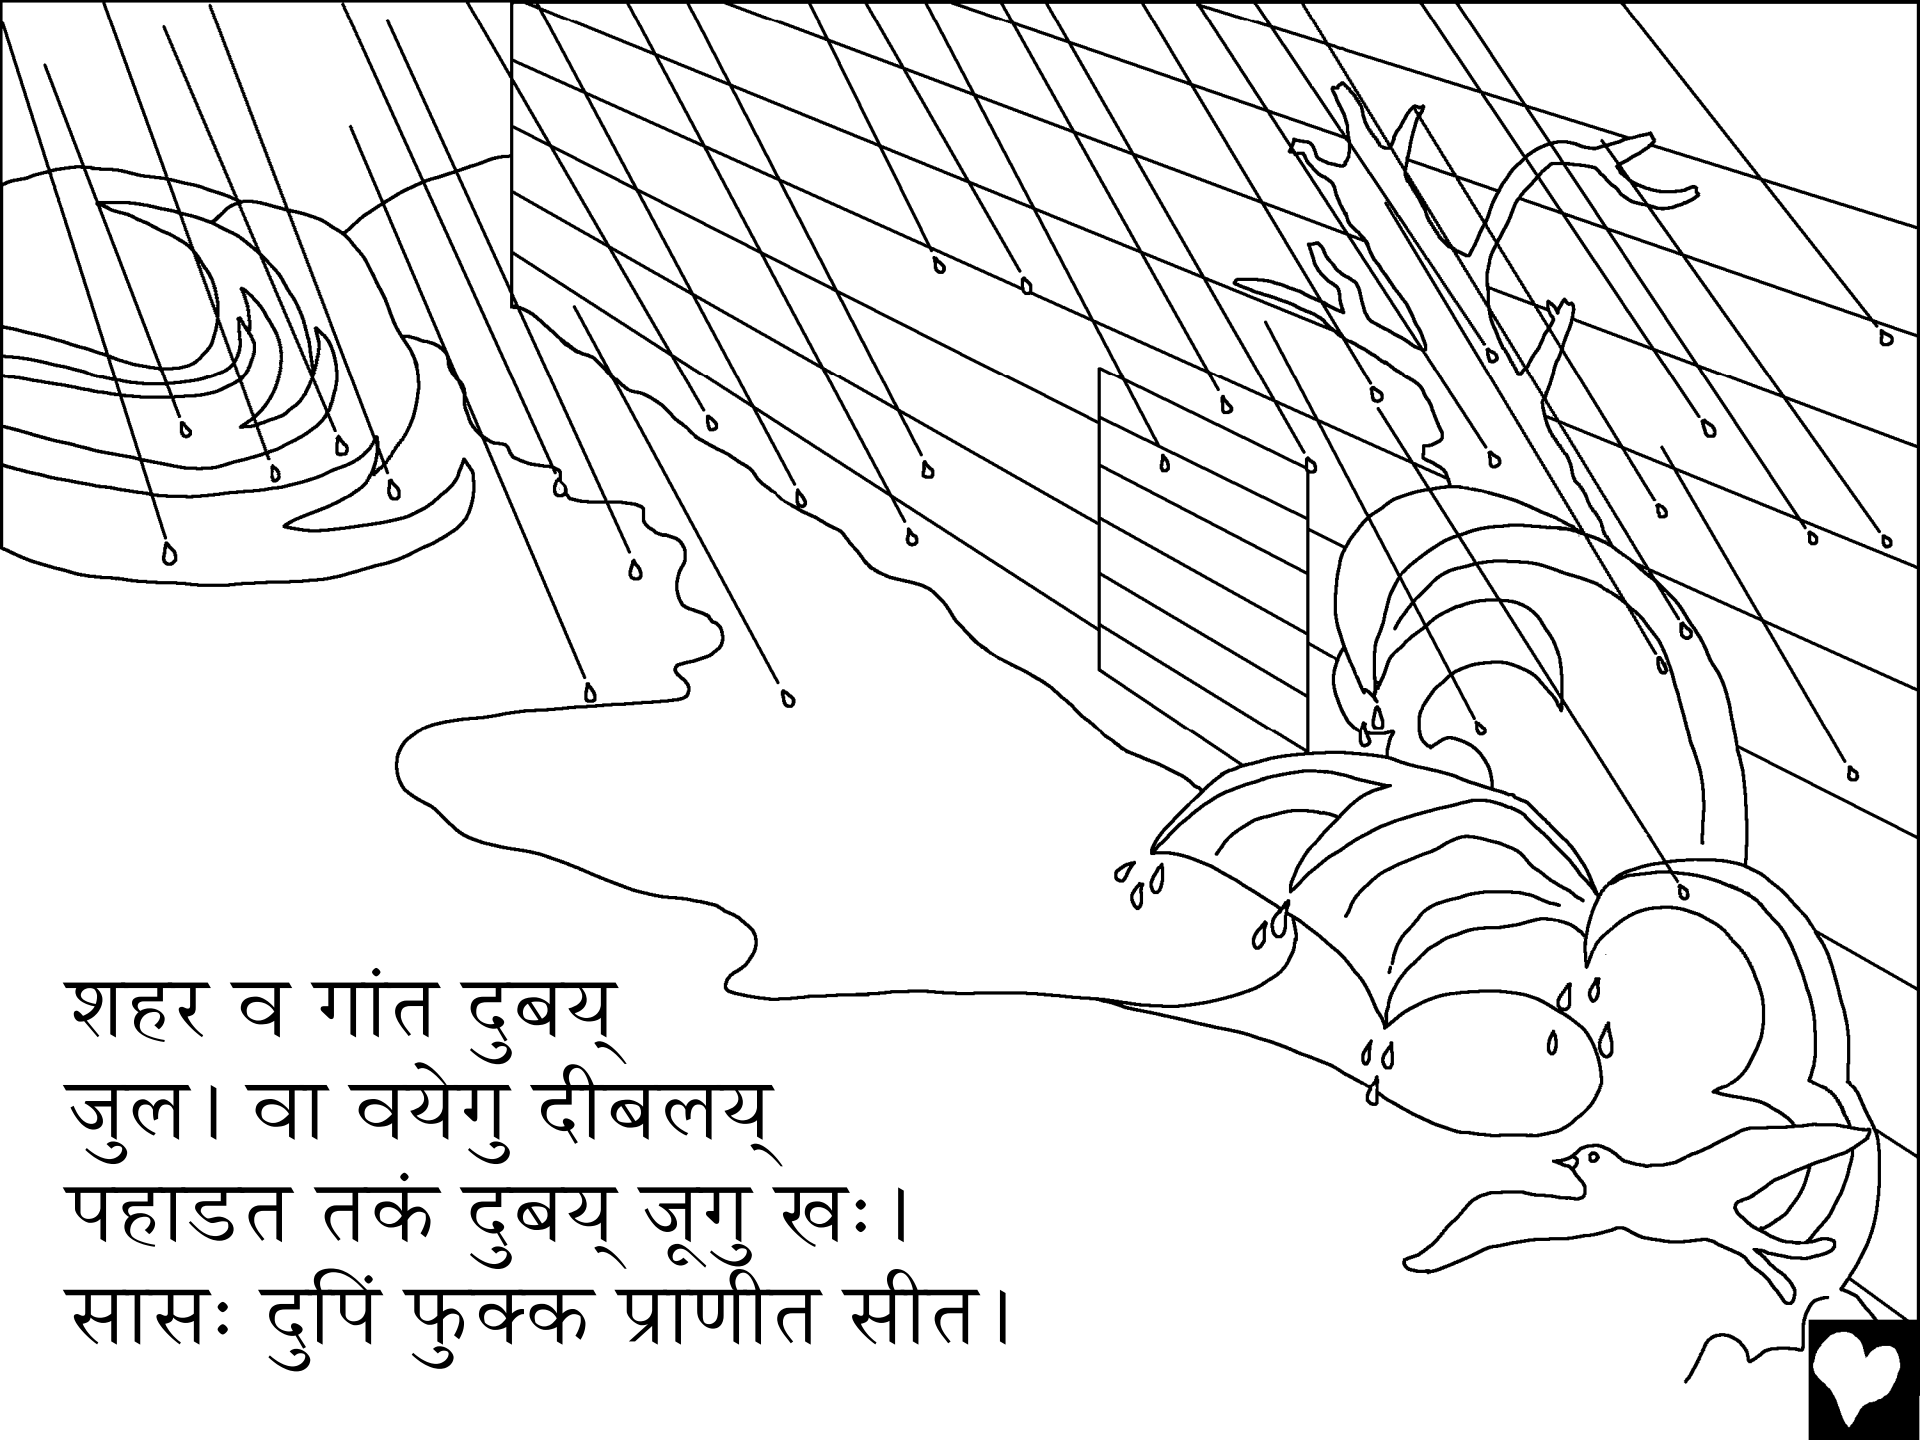 शहर व गांत दुबय्
जुल। वा वयेगु दीबलय्
पहाडत तकं दुबय् जूगु खः।
सासः दुपिं फुक्क प्राणीत सीत।